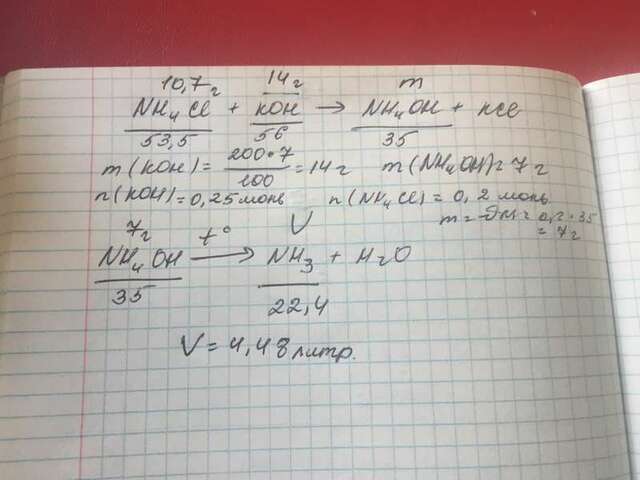 10,7г 14г m
NH₄Cl + KOH → NH₄OH + KCl
53,5 56 35
m(KOH) = 200·7 / 100 = 14г m(NH₄OH) = 7г
n(KOH) = 0,25 моль n(NH₄Cl) = 0,2 моль
m = νM = 0,2·35
= 7г
7г t° V
NH₄OH → NH₃ + H₂O
35 22,4
V = 4,48 литр.